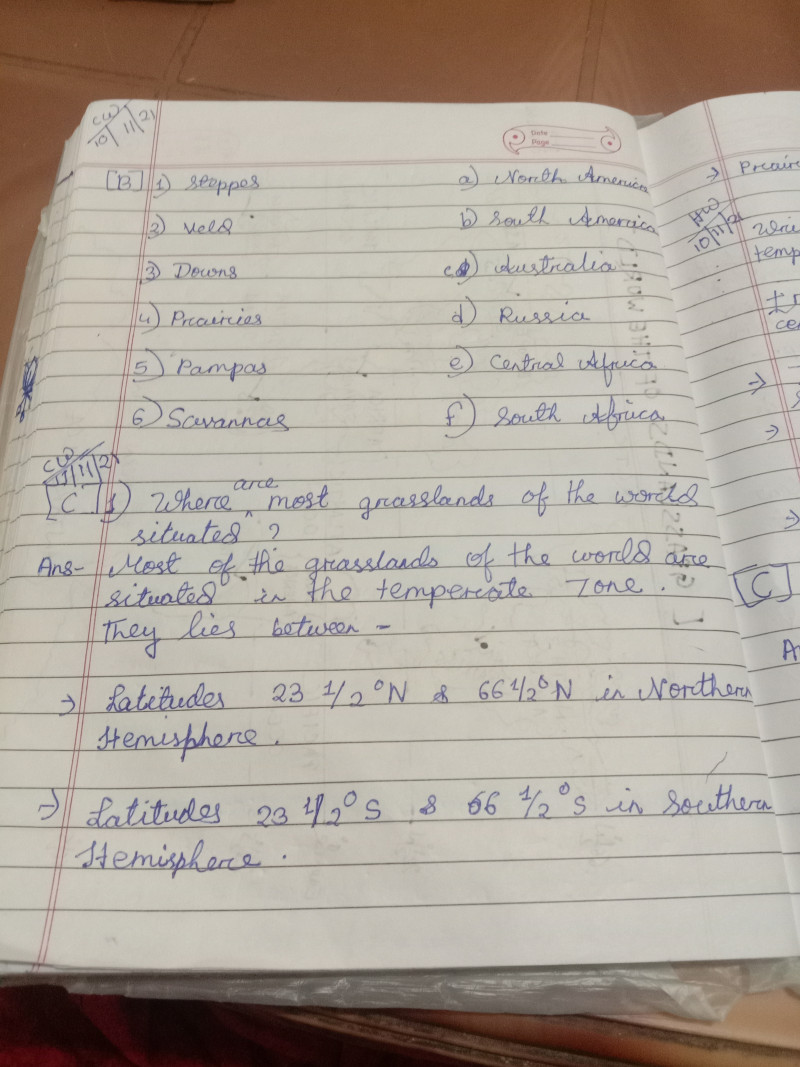 CW
10/11/21
Date
Page
[B] 1) Steppes a) North America
2) Veld b) South America
3) Downs c) Australia
4) Prairies d) Russia
5) Pampas e) Central Africa
6) Savannas f) South Africa
CW
11/11/21
[C] 1) Where are most grasslands of the world
situated ?
Ans- Most of the grasslands of the world are
situated in the temperate Zone.
They lies between -
→ Latitudes 23 1/2°N & 66 1/2°N in Northern
Hemisphere.
→ Latitudes 23 1/2°S & 66 1/2°S in Southern
Hemisphere.
→
HW
10/11/21
→
→
→
[C]